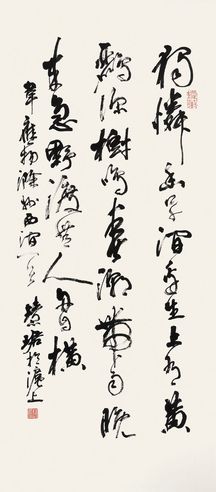 独憐幽草澗邊生上有黃
鸝深樹鳴春潮帶雨晚
來急野渡無人舟自橫
韋應物滁州西澗 慧珺於滬上